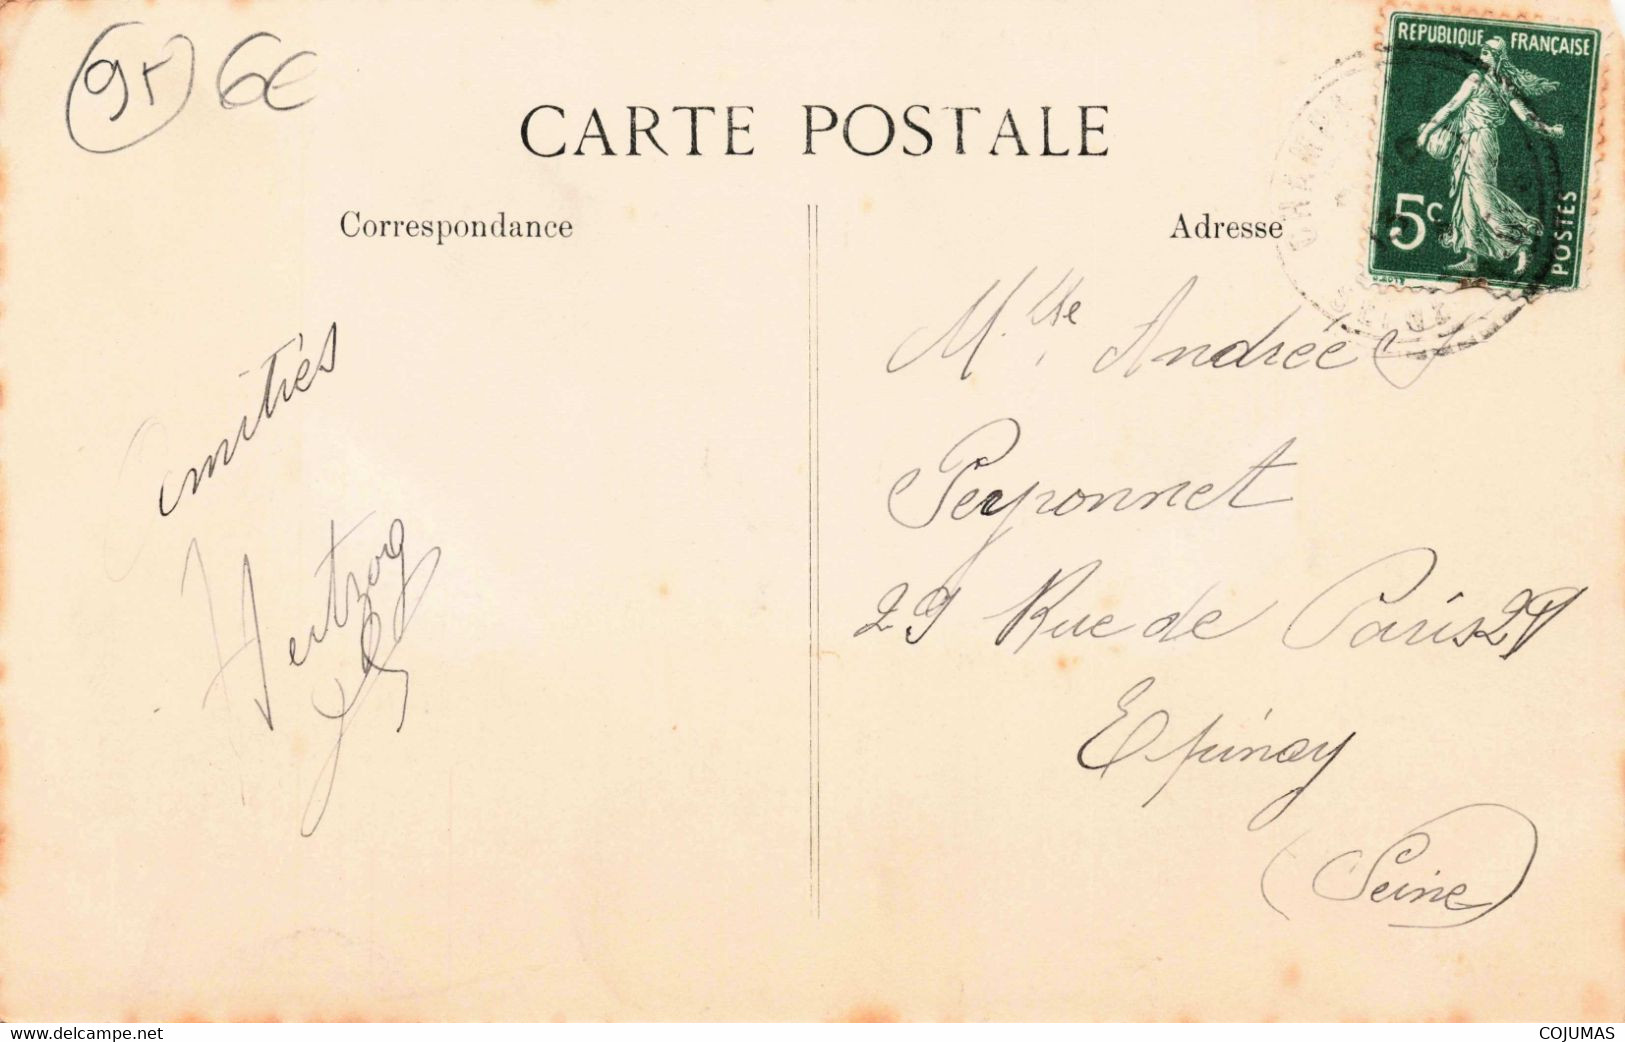 95 6€
CARTE POSTALE
Correspondance
Adresse
REPUBLIQUE FRANÇAISE
5c
POSTES
Amitiés
Hertzog
Mlle Andrée
Peyronnet
29 Rue de Paris 29
Epinay
(Seine)
www.delcampe.net
COJUMAS